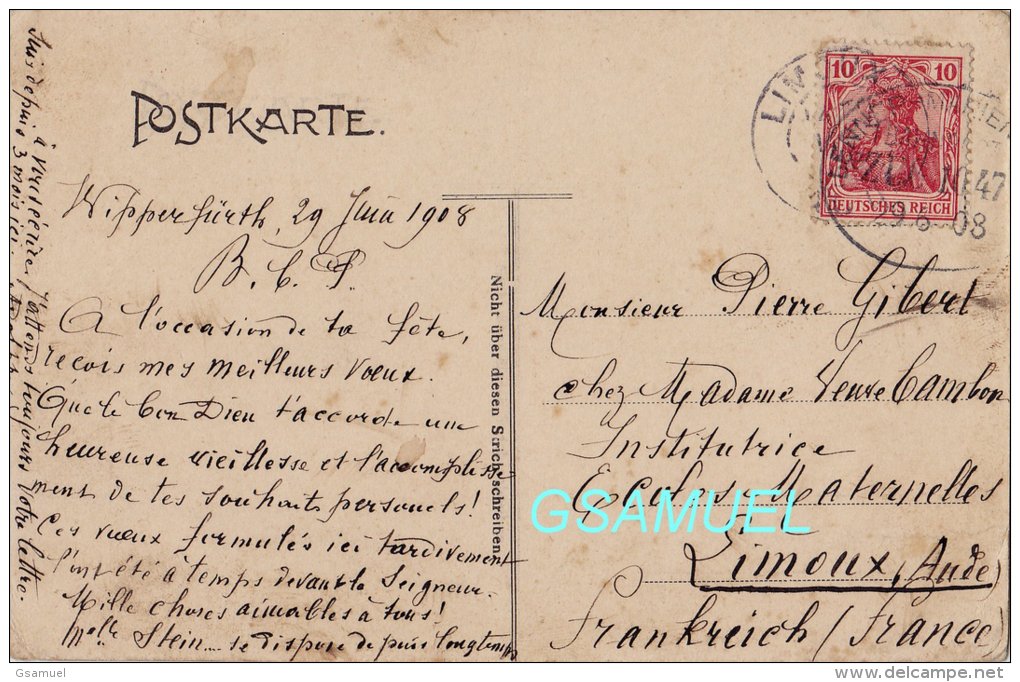 POSTKARTE.
Wipperfürth, 29 Juin 1908
B. C. P.
A l'occasion de ta fête,
reçois mes meilleurs vœux.
Que le bon Dieu t'accorde une
heureuse vieillesse et l'accomplisse
ment de tes souhaits personnels!
Ces vœux formulés ici tardivement
l'ont été à temps devant le Seigneur.
Mille choses aimables à tous!
Melle Stein.... se dispose depuis longtemps
à t'écrire, j'attends toujours votre lettre.
Suis depuis 3 mois ici.
Nicht über diesen Strich schreiben
10 10
DEUTSCHES REICH
LIM
47
29 6 08
Monsieur Pierre Gibert
chez Madame Veuve Cambon
Institutrice
Ecoles Maternelles
Limoux, (Aude)
Frankreich (France)
GSAMUEL
Gsamuel
www.delcampe.net